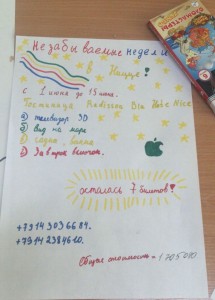 Незабываемые недели
в Ницце!
с 1 июня до 15 июня.
Гостиница Radisson Blu Hotel Nice
телевизор 3D
вид на море
сауна, баня
Завтрак включен.
осталось 7 билетов!
+79143036684.
+79142384610.
Общая стоимость-